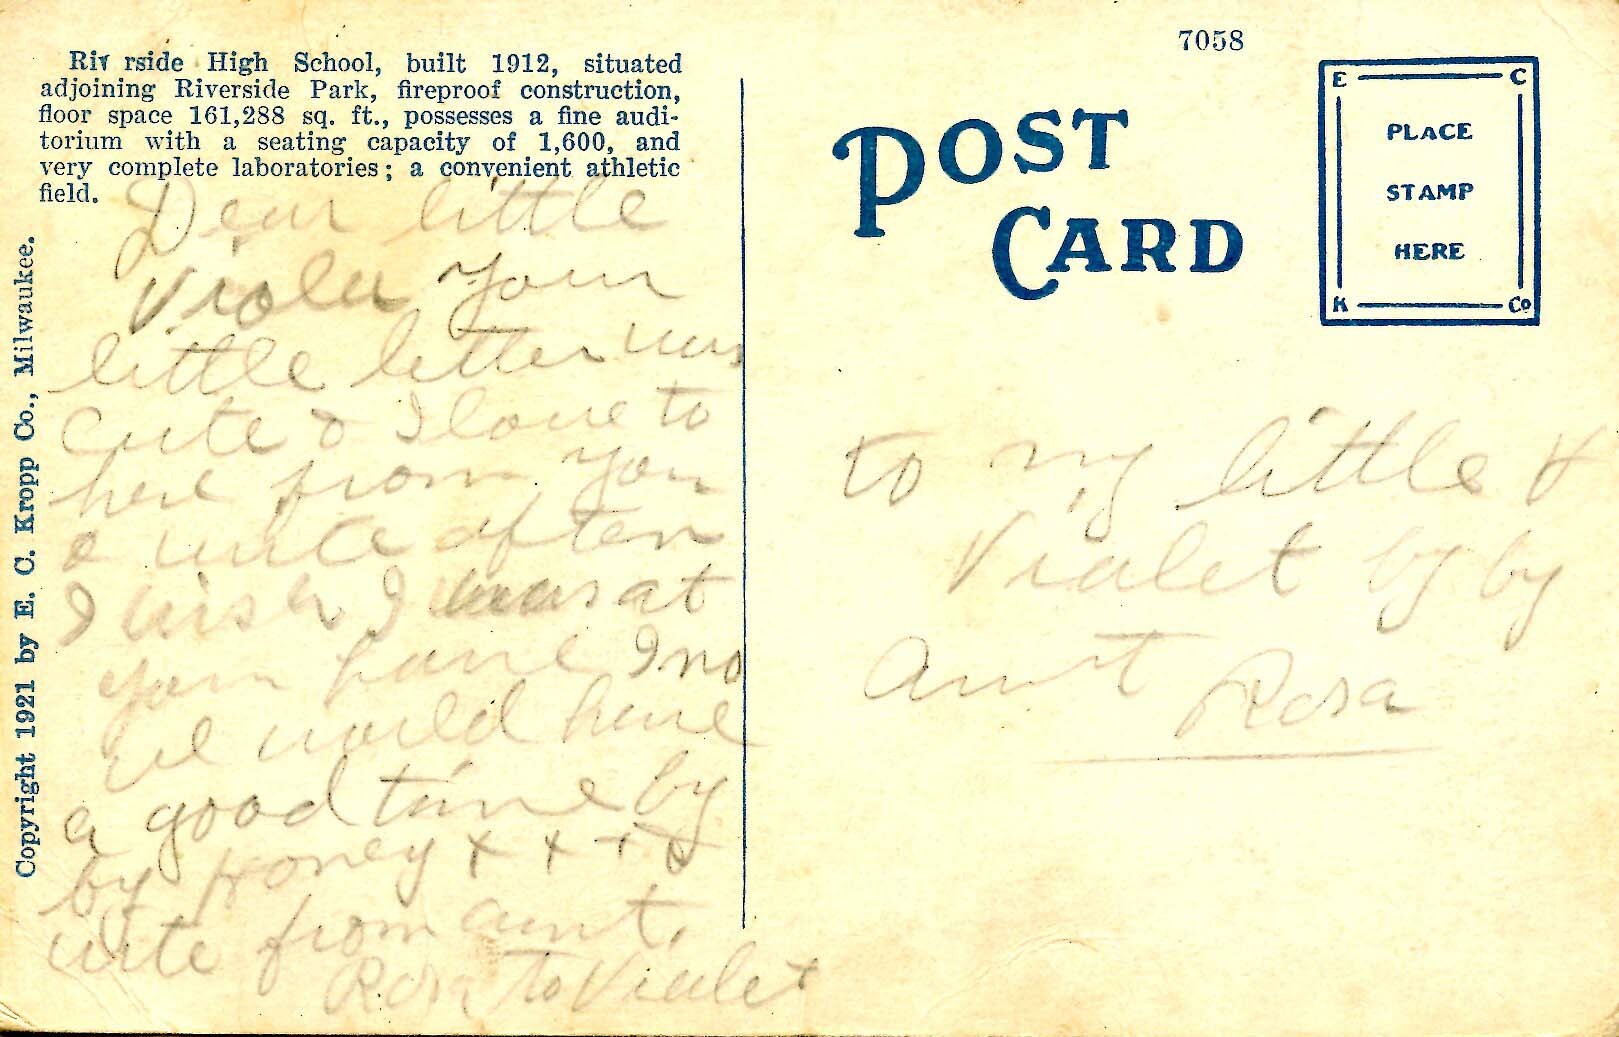 Riv rside High School, built 1912, situated
adjoining Riverside Park, fireproof construction,
floor space 161,288 sq. ft., possesses a fine audi-
torium with a seating capacity of 1,600, and
very complete laboratories; a convenient athletic
field.
Dear little
Violet your
little letter was
cute & I love to
here from you
write often
I wish I was at
your I no
we would have
a good time by
by honey x x x x
write from aunt.
Rosa to Vialet
Copyright 1921 by E. C. Kropp Co., Milwaukee.
7058
POST
CARD
E C
PLACE
STAMP
HERE
K Co
to my little +
Vialet by by
aunt Rosa